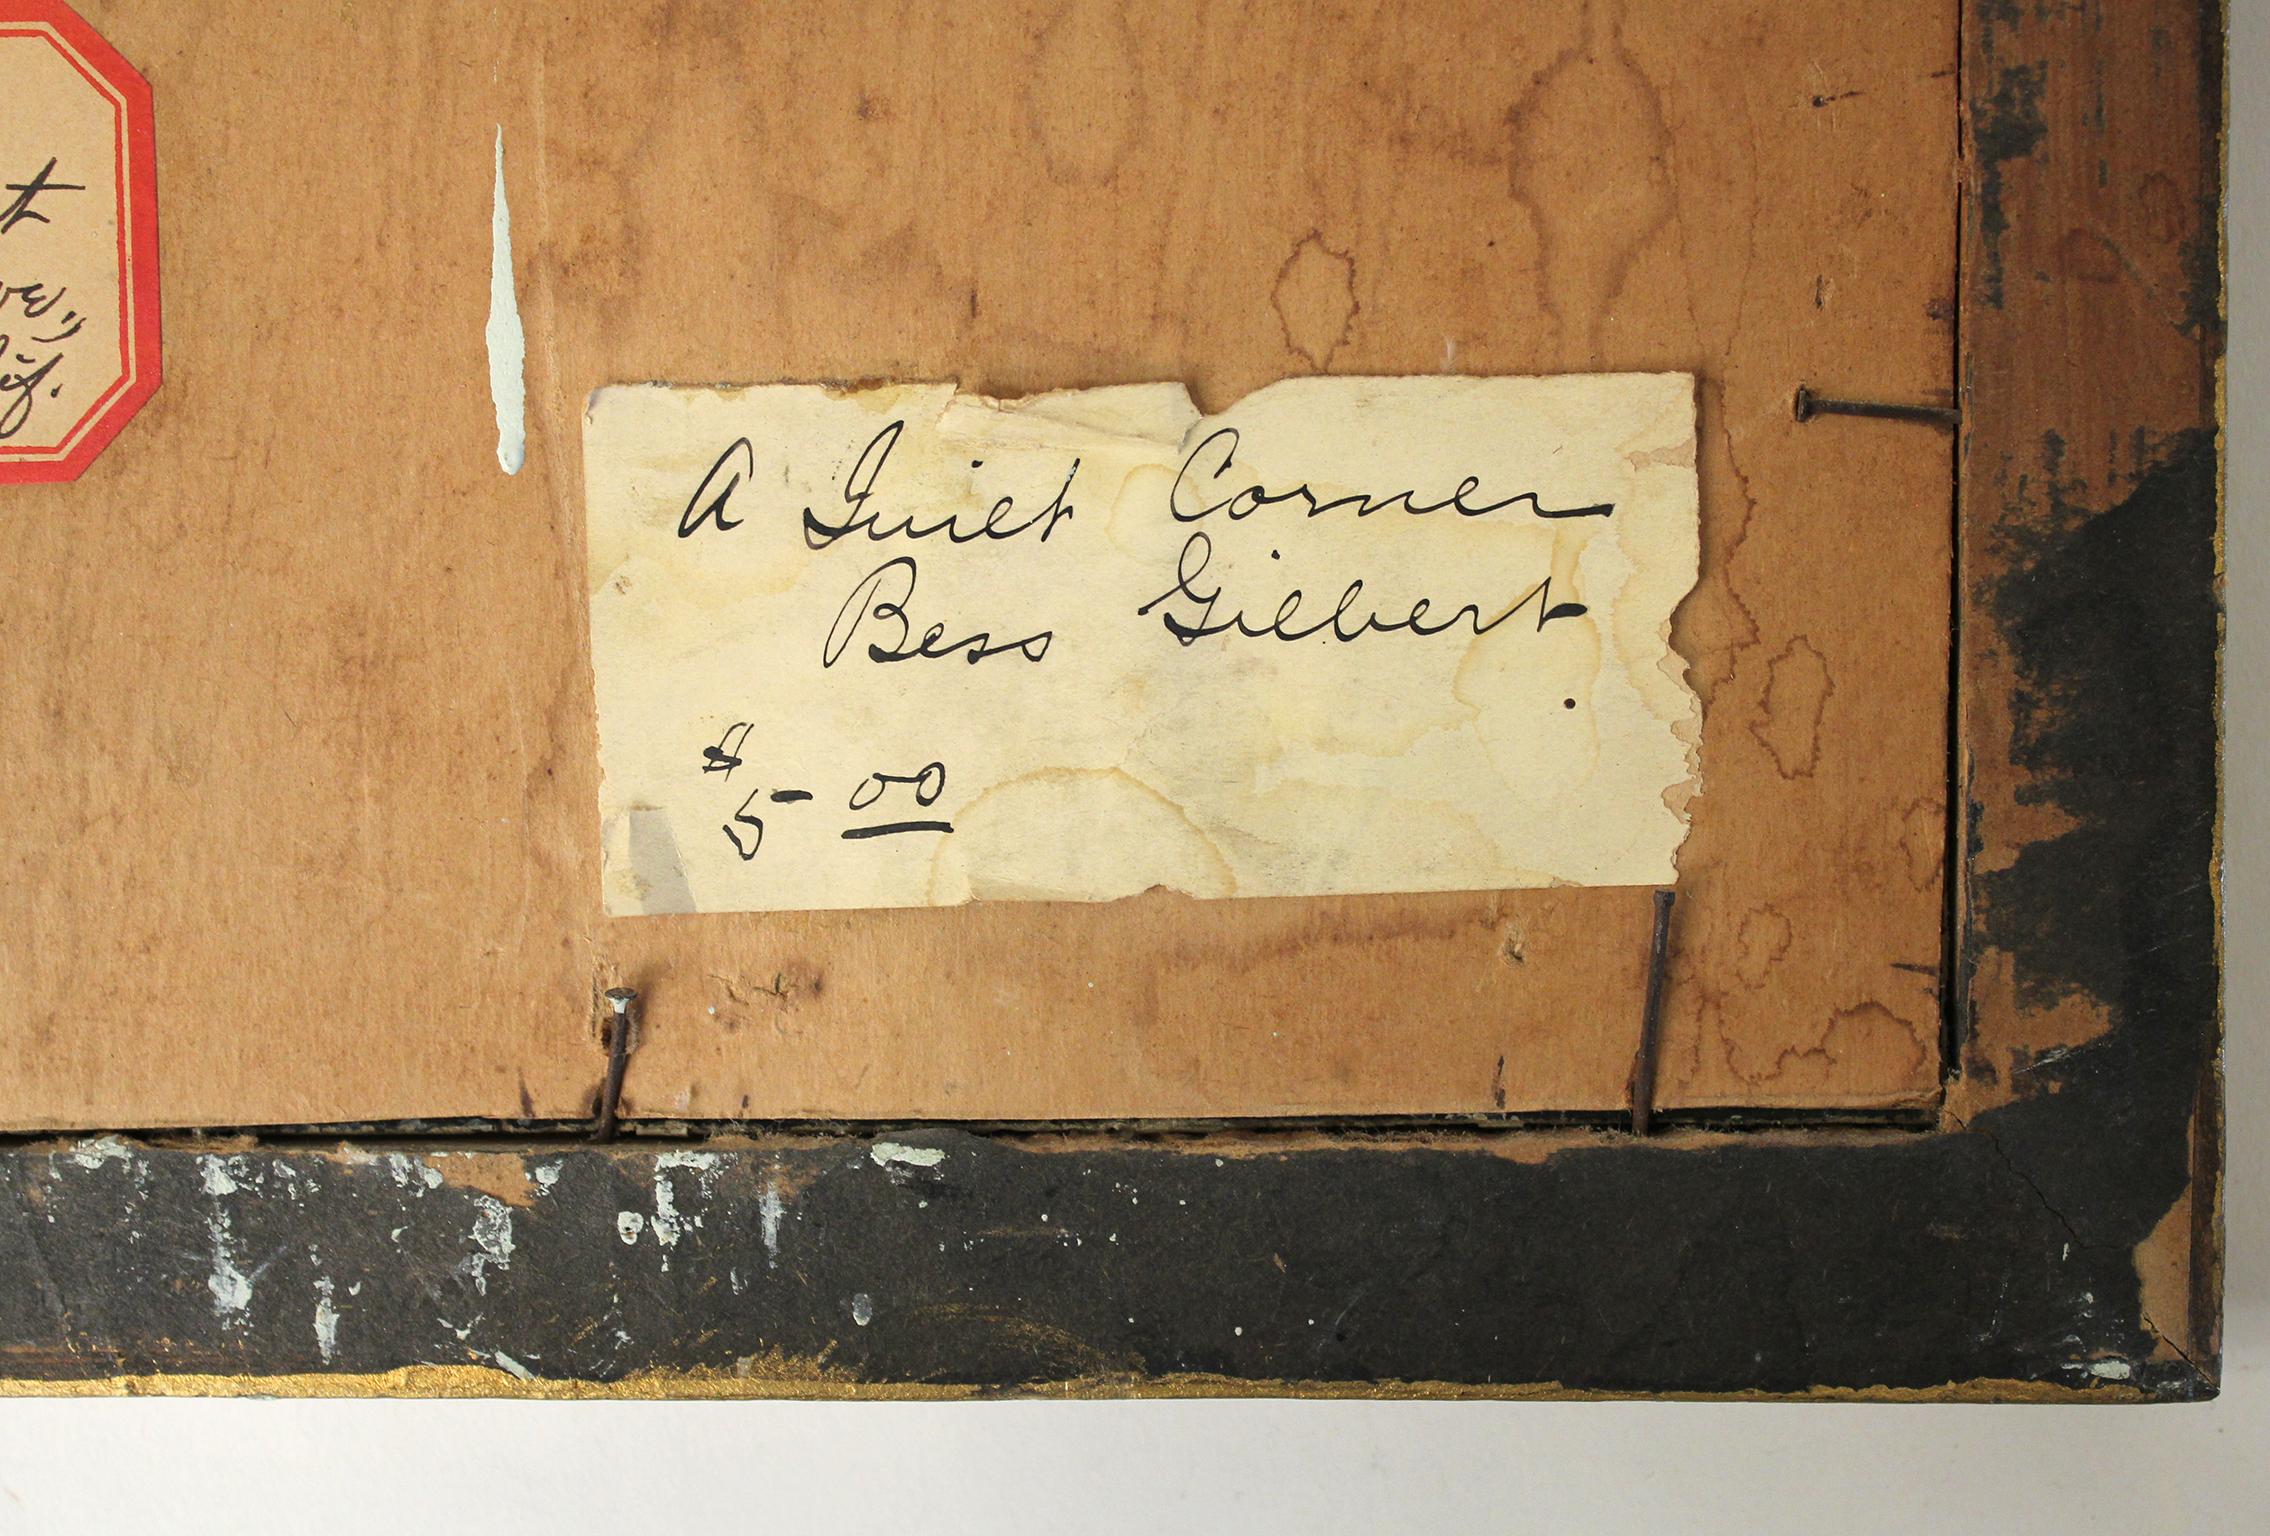 A Quiet Corner
Bess Gilbert
$5.00